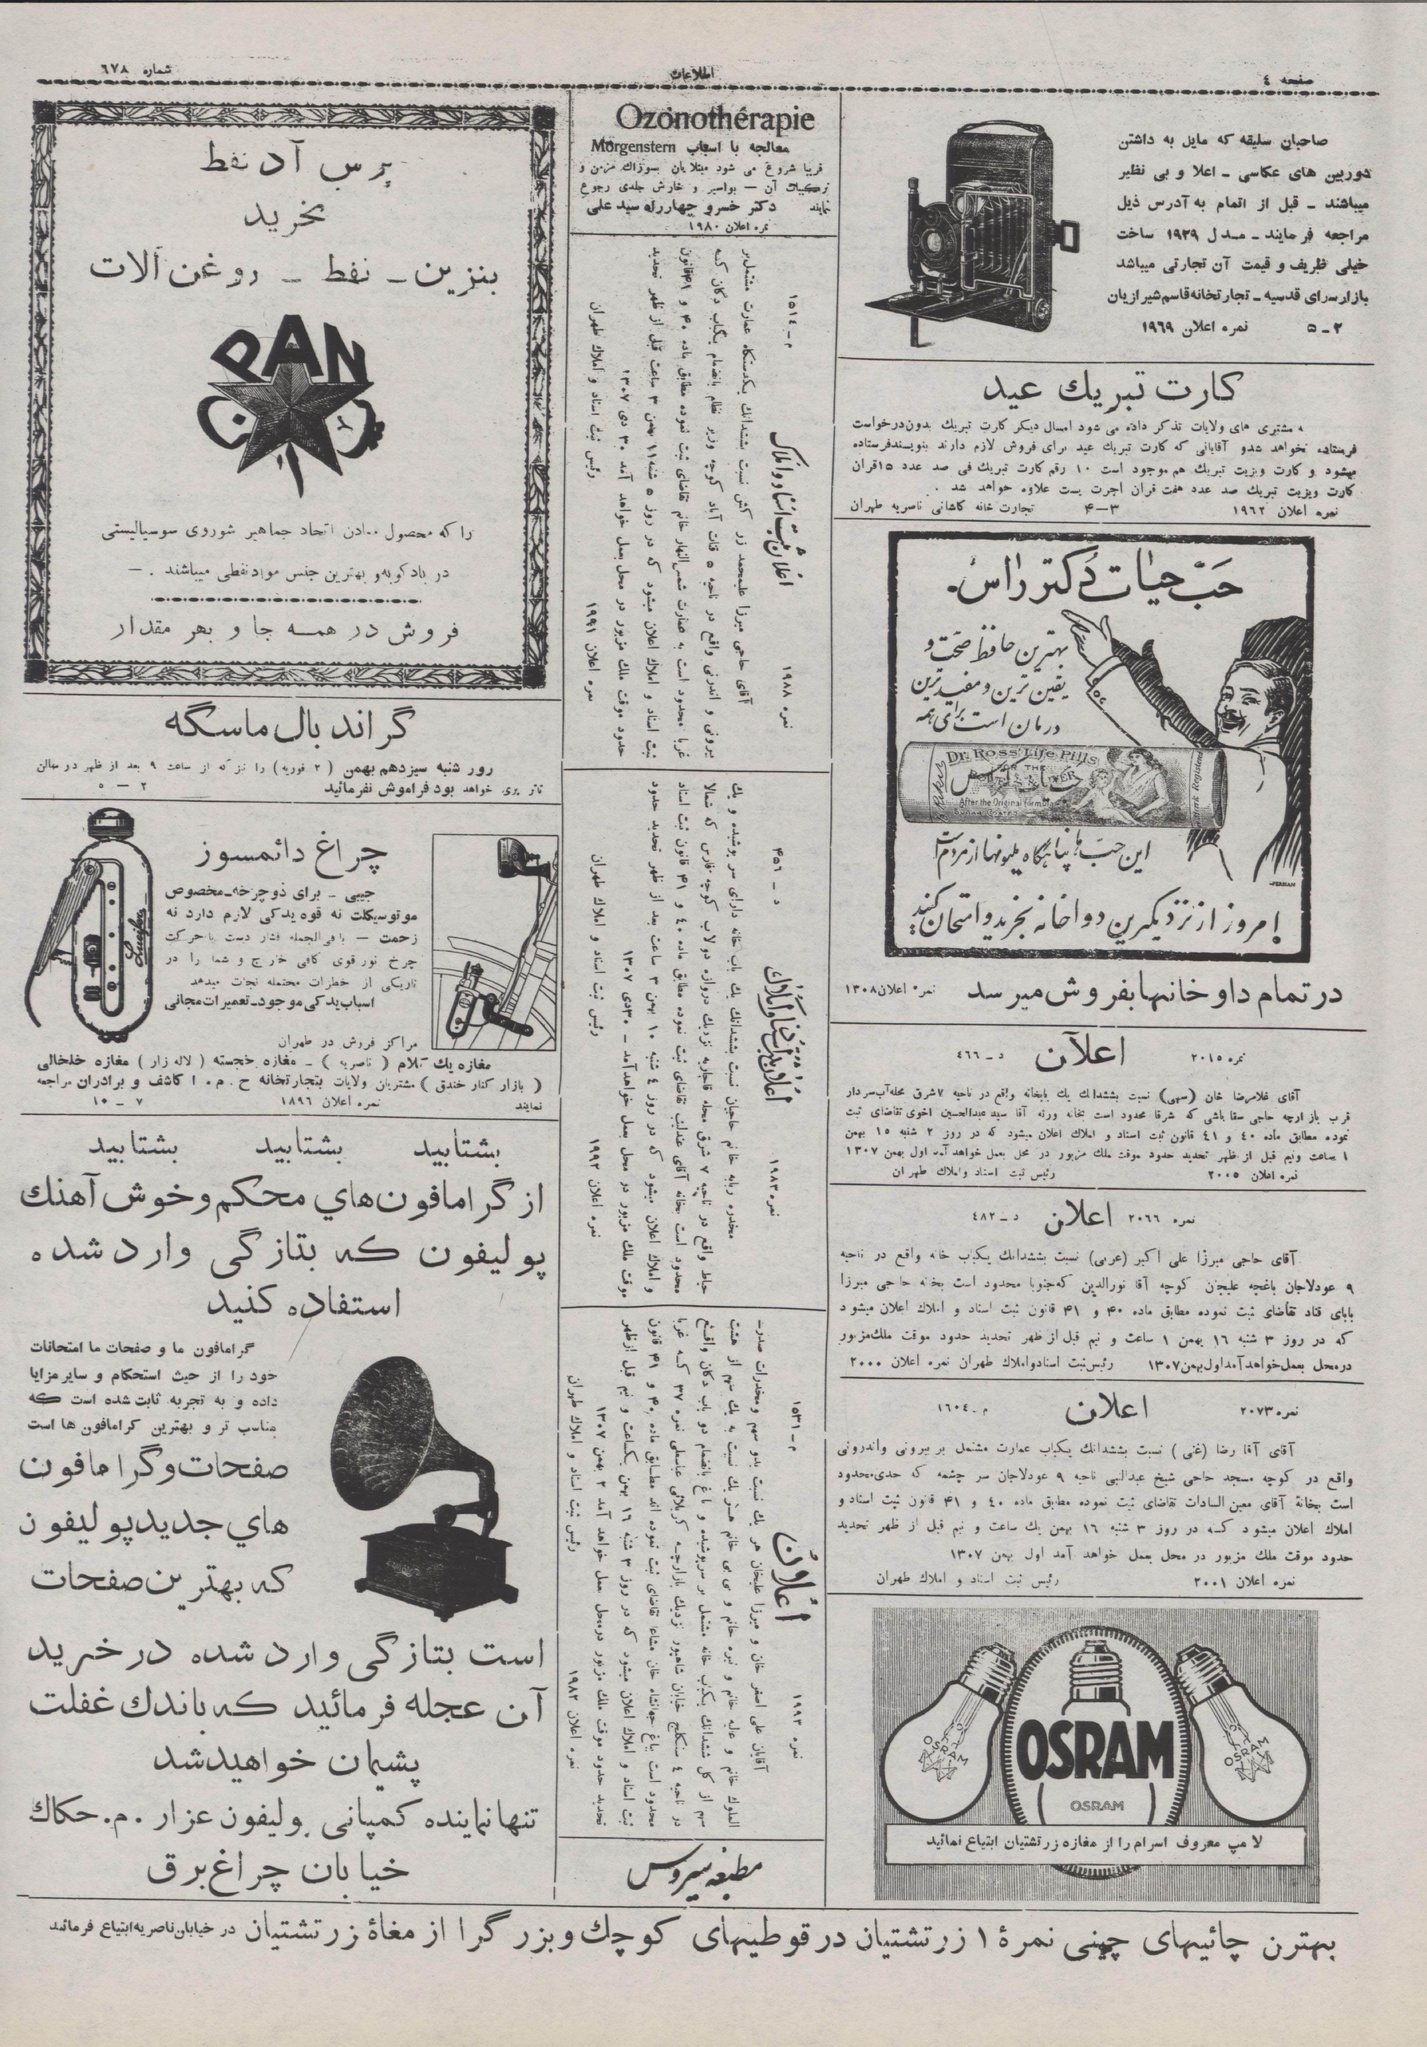 صفحه ٤
اطلاعات
شماره ٦٧٨
صاحبان سلیقه که مایل به داشتن
دوربین های عکاسی ـ اعلا و بی نظیر
میباشند ـ قبل از اتمام به آدرس ذیل
مراجعه فرمایند ـ مدل ۱۹۲۹ ساخت
خیلی ظریف و قیمت آن تجارتی میباشد
بازار سرای قدسیه ـ تجارتخانه قاسم شیرازیان
۲ـ۵ نمره اعلان ۱۹۶۹
کارت تبریك عید
مشتری های ولایات تذکر داده می شود امسال دیگر کارت تبریك بدون درخواست
فرستاده نخواهد شد و آقایانی که کارت تبریك عید برای فروش لازم دارند بنویسند فرستاده
میشود و کارت ویزیت تبریك هم موجود است ۱۰ رقم کارت تبریك فی صد عدد ۱۵ قران
کارت ویزیت تبریك صد عدد هفت قران اجرت پست علاوه خواهد شد .
نمره اعلان ۱۹۶۲ ۳ـ۴ تجارت خانه کاشانی ناصریه طهران
حبّ حیات دکتر راس.
بهترین حافظ صحّت و
یقین ترین و مفیدترین
درمان است برای همه
Dr. Ross' Life Pills
After the Original formula
این حبّ ها پناهگاه ملیونها از مردم است
امروز از نزدیکترین دواخانه بخرید و امتحان کنید
در تمام داوخانها بفروش میرسد نمره اعلان ۱۳۰۸
نمره ۲۰۱۵ اعلان د ـ ٤٦٦
آقای غلامرضا خان (سهی) نسبت بششدانك یك بابخانه واقع در ناحیه ۷ شرق محله آب سردار
قرب بازارچه حاجی سقا باشی که شرقا محدود است بخانه ورثه آقا سید عبدالحسین اخوی تقاضای ثبت
نموده مطابق ماده ٤٠ و ٤١ قانون ثبت اسناد و املاك اعلان میشود که در روز ۲ شنبه ۱۵ بهمن
۱ ساعت ونیم قبل از ظهر تحدید حدود موقت ملك مزبور در محل بعمل خواهد آمد اول بهمن ۱۳۰۷
نمره اعلان ۲۰۰۵ رئیس ثبت اسناد واملاك طهران
نمره ۲۰۶۶ اعلان د ـ ٤٨٢
آقای حاجی میرزا علی اکبر (عربی) نسبت بششدانك یکباب خانه واقع در ناحیه
۹ عودلاجان باغچه علیجان کوچه آقا نورالدین که جنوبا محدود است بخانه حاجی میرزا
بابای قناد تقاضای ثبت نموده مطابق ماده ۴۰ و ۴۱ قانون ثبت اسناد و املاك اعلان میشود
که در روز ۳ شنبه ۱۶ بهمن ۱ ساعت و نیم قبل از ظهر تحدید حدود موقت ملك مزبور
در محل بعمل خواهد آمد اول بهمن ۱۳۰۷ رئیس ثبت اسناد واملاك طهران نمره اعلان ۲۰۰۰
نمره ۲۰۷۳ اعلان م ـ ۱۶۰٤
آقای آقا رضا (غنی) نسبت بششدانك یکباب عمارت مشتمل بر بیرونی واندرونی
واقع در کوچه مسجد حاجی شیخ عبدالنبی ناحیه ۹ عودلاجان سر چشمه که حدی محدود
است بخانة آقای معین السادات تقاضای ثبت نموده مطابق ماده ٤٠ و ٤١ قانون ثبت اسناد و
املاك اعلان میشود که در روز ۳ شنبه ۱۶ بهمن یك ساعت و نیم قبل از ظهر تحدید
حدود موقت ملك مزبور در محل بعمل خواهد آمد اول بهمن ۱۳۰۷
نمره اعلان ۲۰۰۱ رئیس ثبت اسناد و املاك طهران
OSRAM
OSRAM
OSRAM
OSRAM
لامپ معروف اسرام را از مغازه زرتشتیان ابتیاع نمائید
Ozonothérapie
معالجه با اسباب Morgenstern
قریبا شروع می شود مبتلایان بسوزاك مزمن و
ترکیبات آن — بواسیر و خارش جلدی رجوع
نمایند دکتر خسرو چهارراه سید علی
نمره اعلان ۱۹۸۰
م ـ ۱۵۱٤ اعلان ثبت اسناد و املاک نمره ۱۹۸۸
بیرونی و اندرونی واقع در ناحیه ۵ قنات آباد کوچه وزیر نظام بانضمام یکباب دکان که
غربا محدود است به عمارت شمس النهار خانم تقاضای ثبت نموده مطابق ماده ۴۰ و ۴۱ قانون
ثبت اسناد و املاك اعلان میشود که در روز ۵ شنبه ۱۱ بهمن ۳ ساعت قبل از ظهر تحدید
حدود موقت ملك مزبور در محل بعمل خواهد آمد ۳۰ دی ۱۳۰۷
نمره اعلان ۱۹۹۱ رئیس ثبت اسناد و املاك طهران
د ـ ۴۵۶ نمره ۱۹۸۳
مخدره ربابه خانم حاجیان نسبت بششدانك یك باب خانه دارای سر پوشیده و یك
حیاط واقع در ناحیه ۷ شرق محله قاجاریه نزدیك دروازه دولاب کوچه فارس که شمالا
محدود است بخانه آقای عندلیب تقاضای ثبت نموده مطابق ماده ٤٠ و ٤١ قانون ثبت اسناد
و املاك اعلان میشود که در روز ٤ شنبه ۱۰ بهمن ۳ ساعت بعد از ظهر تحدید حدود
موقت ملك مزبور در محل بعمل خواهد آمد ـ ۳۰ دی ۱۳۰۷
نمره اعلان ۱۹۹۲ رئیس ثبت اسناد و املاك طهران
م ـ ۱۵۳۱ اعلان نمره ۱۹۹۳
آقایان علی اصغر خان و میرزا علیخان هر یك نسبت بدو سهم ومخدرات صدرـ
الملوك خانم و عالیه خانم و نیره خانم و بی بی خانم هر یك نسبت به یك سهم از هشت
سهم از کل ششدانك یکباب خانه مشتمل بر سرپوشیده و باغ بانضمام دو باب دکان واقع
در ناحیه ٤ سنگلج خیابان شاهپور نزدیك بازارچه کربلائی عباسعلی نمره ۳۷ که غربا
محدود است بباغ جهانشاه خان مشاعا تقاضای ثبت نموده اند مطابق ماده ۴۰ و ۴۱ قانون
ثبت اسناد و املاك اعلان میشود که در روز ۳ شنبه ۱۶ بهمن یکساعت و نیم قبل از ظهر
تحدید حدود موقت ملك مزبور در محل بعمل خواهد آمد ۲ بهمن ۱۳۰۷
نمره اعلان ۱۹۸۲ رئیس ثبت اسناد و املاك طهران
مطبعه سیروس
پرس آذ نفط
بخرید
بنزین ـ نفط ـ روغن آلات
PAN
را که محصول معادن اتحاد جماهیر شوروی سوسیالیستی
در بادکوبه و بهترین جنس مواد نفطی میباشند . —
فروش در همه جا و بهر مقدار
گراند بال ماسگه
روز شنبه سیزدهم بهمن (۲ فوریه) را نزد که از ساعت ۹ بعد از ظهر در سالن
تاتر پری خواهد بود فراموش نفرمائید ۲ — ۵
چراغ دائمسوز
جیبی ـ برای دوچرخه ـ مخصوص
موتوسیکلت نه قوه یدکی لازم دارد نه
زحمت — بافی الجمله فشار دست یا حرکت
چرخ نور قوی کافی خارج و شما را در
تاریکی از خطرات محتمله نجات میدهد
اسباب یدکی موجود ـ تعمیرات مجانی
مراکز فروش در طهران
مغازه یك کلام (ناصریه) ـ مغازه خجسته (لاله زار) مغازه خلخالی
(بازار کنار خندق) مشتریان ولایات بتجارتخانه ح . م . ا کاشف و برادران مراجعه
نمایند نمره اعلان ۱۸۹۶ ۷ ـ ۱۰
بشتابید بشتابید بشتابید
از گرامافون های محکم و خوش آهنك
پولیفون که بتازگی وارد شده
استفاده کنید
گرامافون ما و صفحات ما امتحانات
خود را از حیث استحکام و سایر مزایا
داده و به تجربه ثابت شده است که
مناسب تر و بهترین گرامافون ها است
صفحات و گرامافون
های جدید پولیفون
که بهترین صفحات
است بتازگی وارد شده در خرید
آن عجله فرمائید که باندك غفلت
پشیمان خواهید شد
تنها نماینده کمپانی پولیفون عزار . م . حکاك
خیابان چراغ برق
بهترن چائیهای چینی نمرهٔ ۱ زرتشتیان در قوطیهای کوچك و بزرگرا از مغاهٔ زرتشتیان در خیابان ناصریه ابتیاع فرمائید